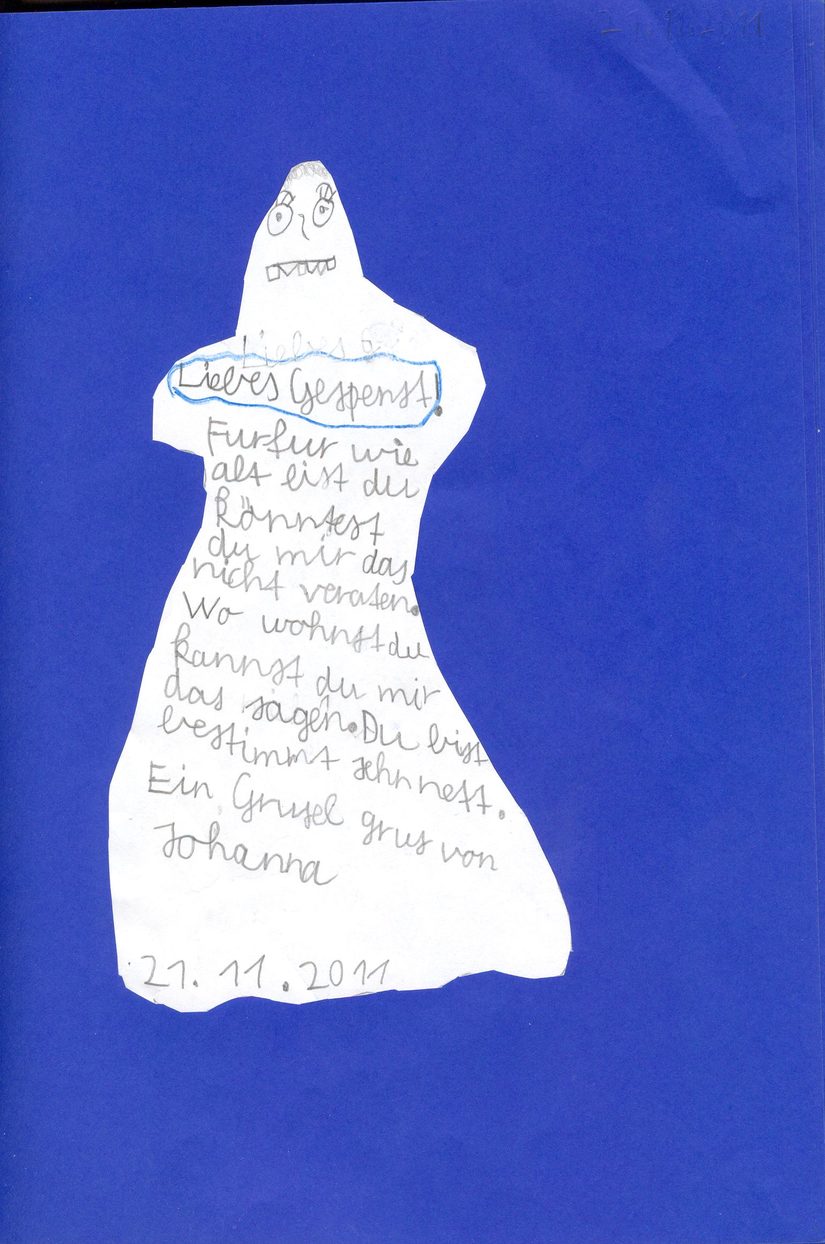 Liebes
Liebes Gespenst!
Furfur wie
alt bist du
könntest
du mir das
nicht veraten.
Wo wohnst du
kannst du mir
das sagen. Du bist
bestimmt sehr nett.
Ein Grusel grus von
Johanna
21.11.2011